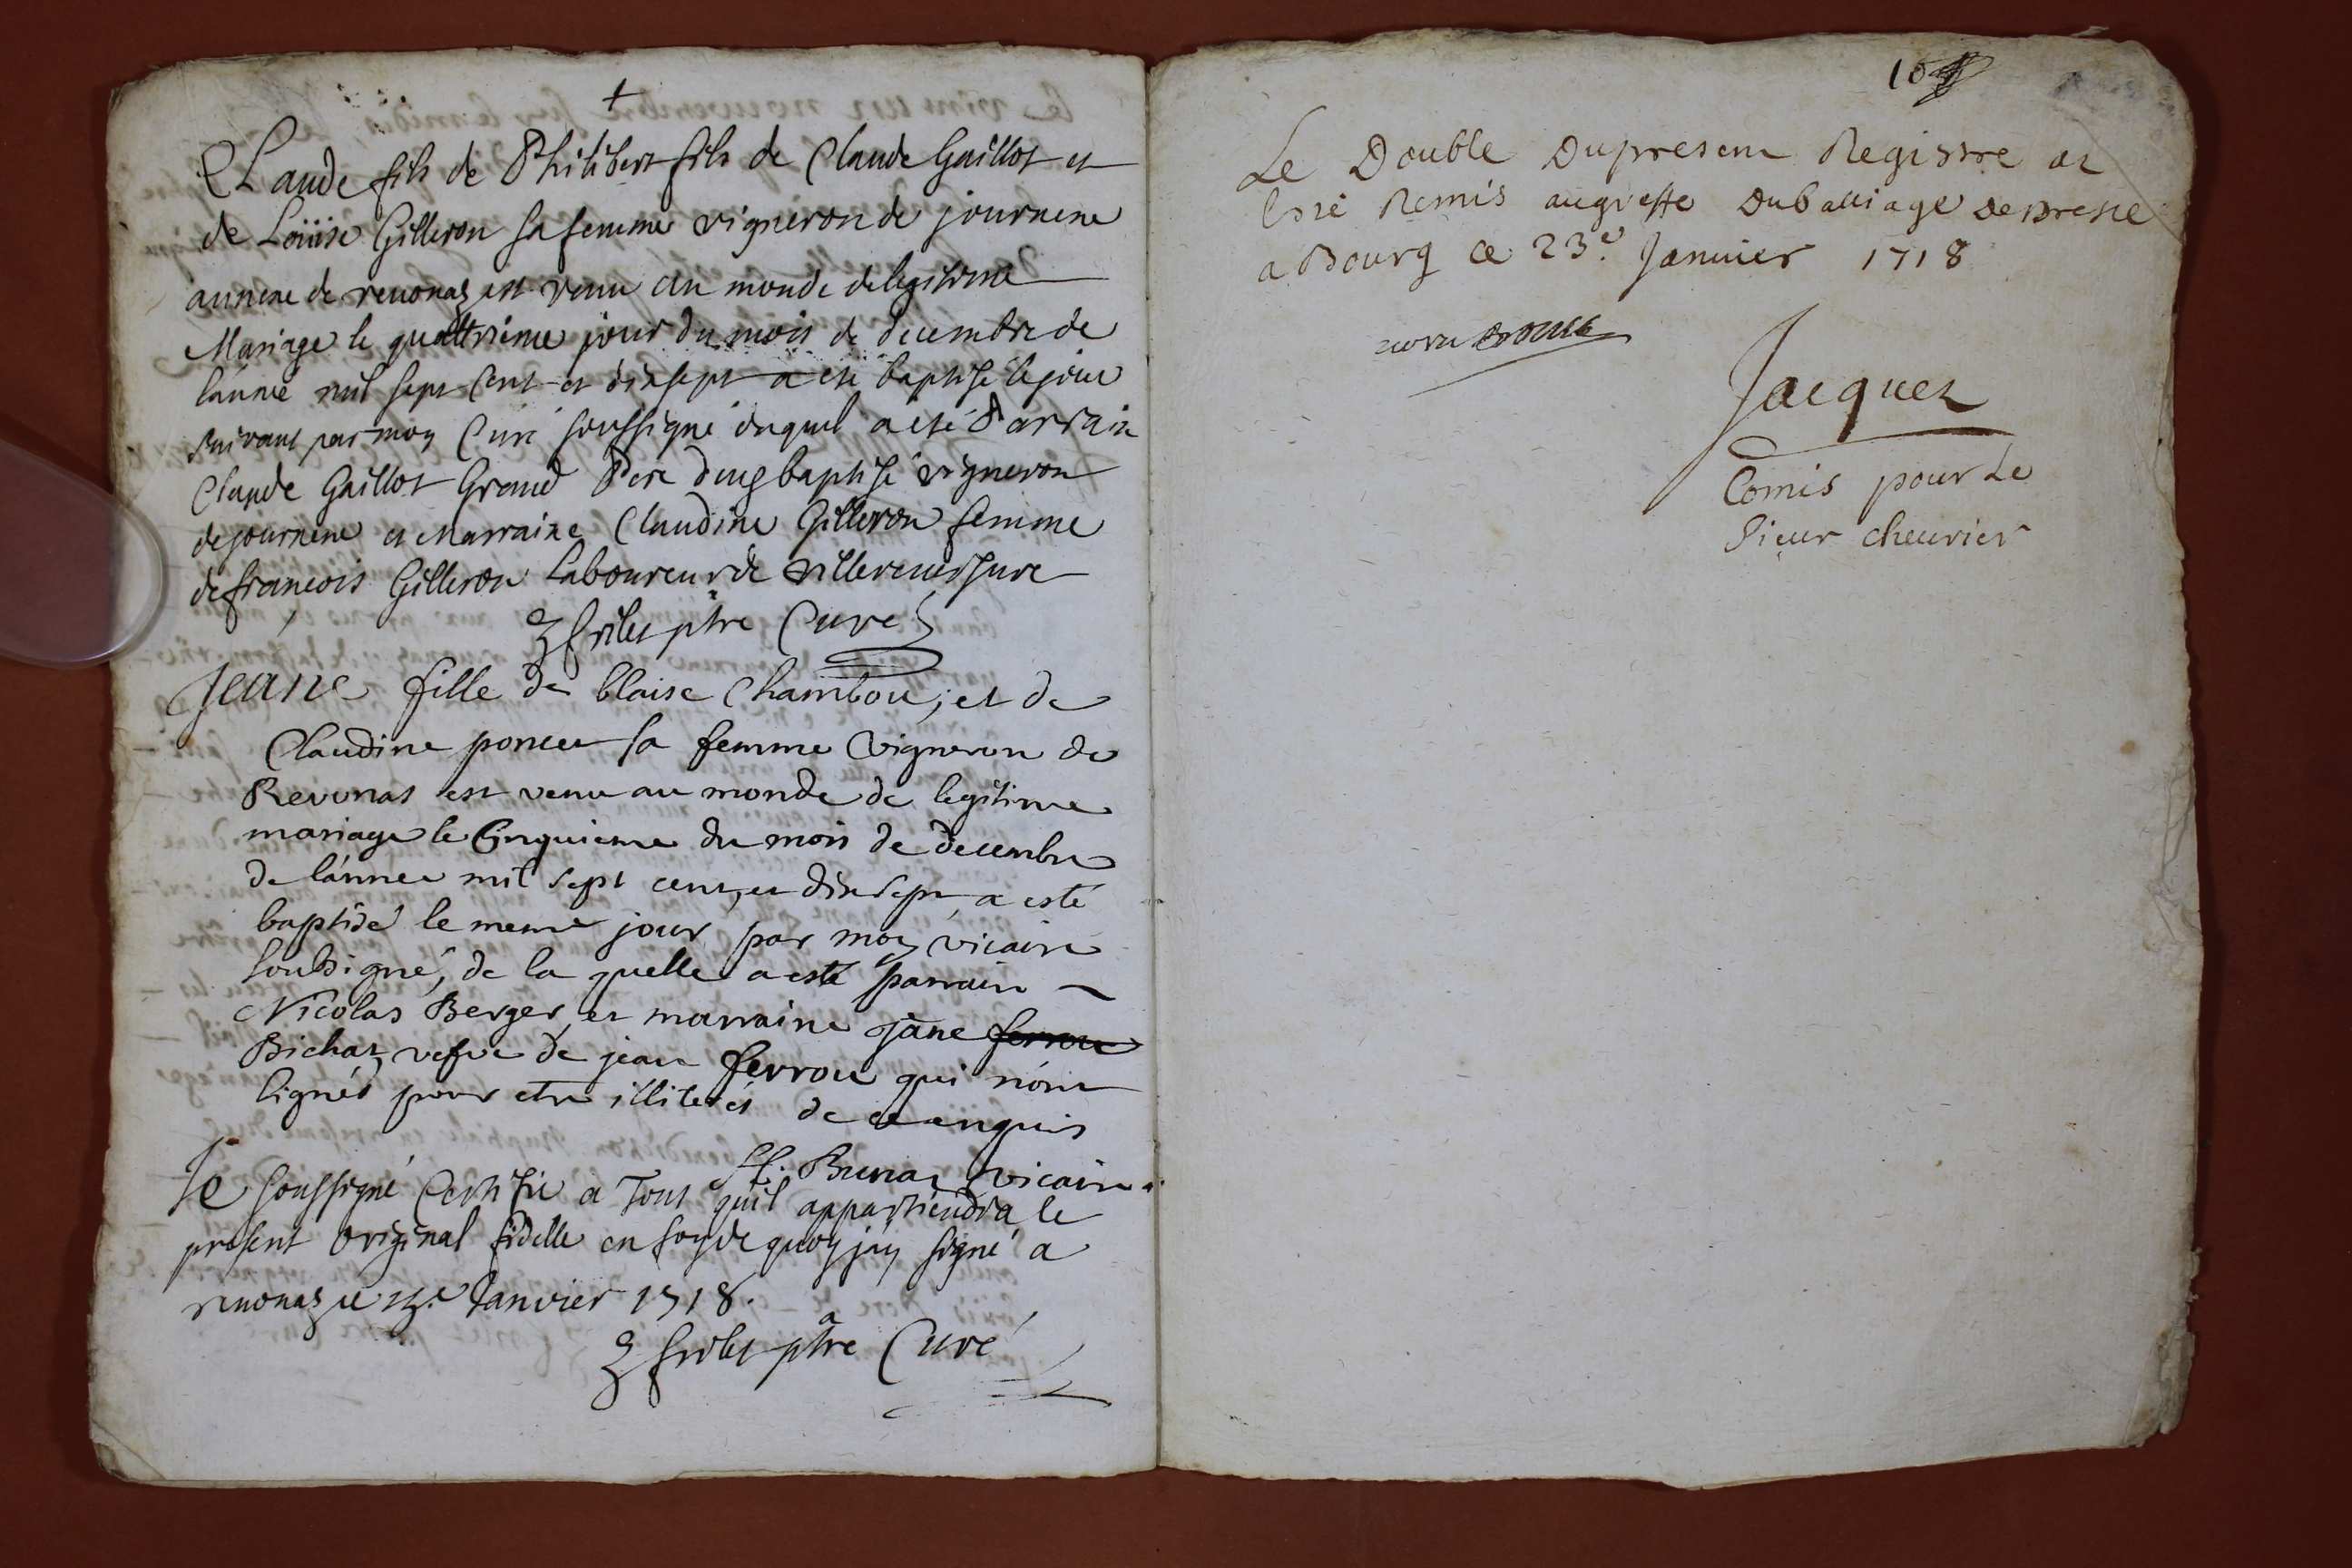 Claude fils de Philibert fils de Claude Gaillot et
de Loüise Gilleron sa femme vigneron de journene
annexe de reuonaz est venu au monde de legitime
Mariage le quattrieme jour du mois de decembre de
lánnée mil sept Cent et dixsept a eté baptisé le jour
suivant par moy Curé soussigné duquel a eté Parrain
Claude Gaillot Grand Pere dudt baptisé vigneron
de journene et Marraine Claudine Gilleron femme
de françois Gilleron Laboureur de villereuersure
ptre Curé
Jeáne fille de blaise Chambou; et de
Claudine poncet sa femme vigneron de
Revonas est venu au monde de legitime
mariage le Cinquieme du mois de decembre
de lánnee mil sept cent, et dix sept, a esté
baptisé le meme jour par moy vicaire
soubsigné, de la quelle a esté parrain
Nicolas Berger, et marraine Jane ferrou
Bichat vefve de jean ferrou qui nónt
signés pour etre illiterés de ce enquis
Brunaz vicaire
Je soussigné Certifie a Tous quil appartiendra le
present original fidelle en foy de quoy jáy signé a
reuonaz ce Janvier 1718.
ptre Curé
Le Double Dupresent Registre at
Esté Remis augreffe Duballiage de Bresse
a Bourg ce 23.e Januier 1718
Jacquet
Comis pour Le
Sieur cheurier